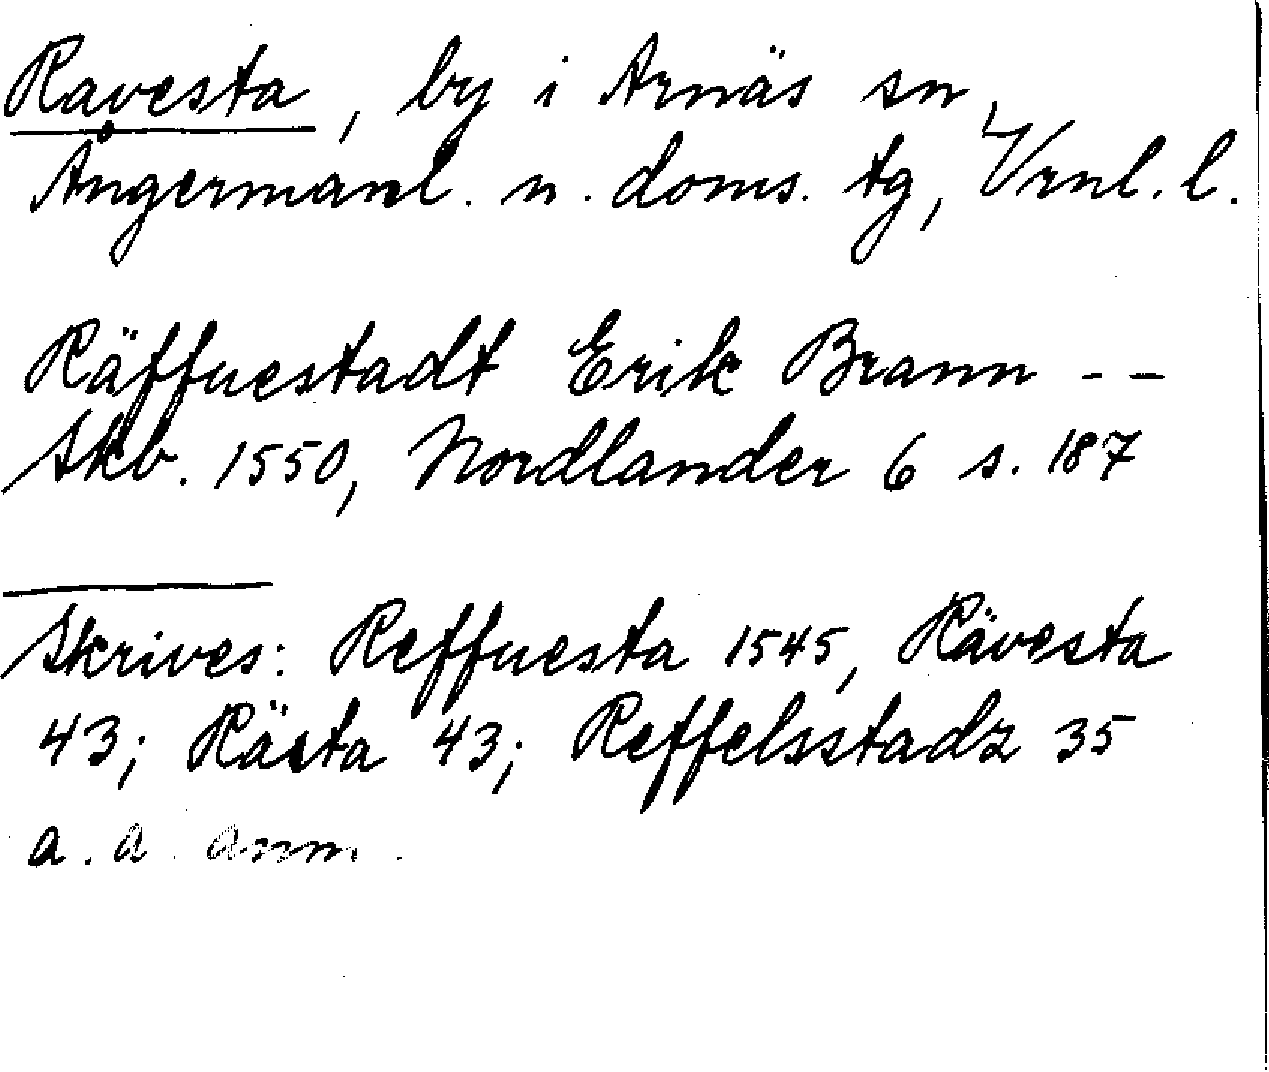 Ravesta, by i Arnäs sn,
Ångermanl. n. doms. tg, Vrnl. l.
Räffuestadt Erik Brann --
Skb. 1550, Nordlander 6 s. 187
Skrives: Reffuesta 1545, Rävesta
43; Rästa 43; Reffelsstadz 35
a. a. anm.